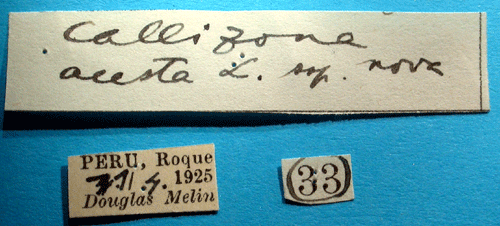 Callizona
acesta L. ssp. nova
PERU, Roque
1925
Douglas Melin
(33)